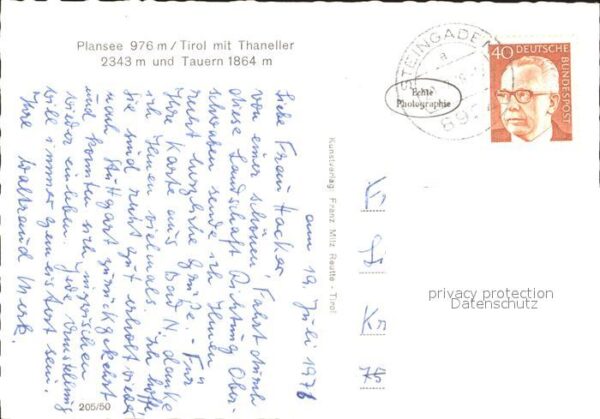 Plansee 976 m / Tirol mit Thaneller
2343 m und Tauern 1864 m
STEINGADEN
a
892
40 DEUTSCHE
BUNDESPOST
Echte
Photographie
Kunstverlag Franz Milz Reutte - Tirol
am 19. Juli 1976
Liebe Frau Hacker
von einer schönen Fahrt durch
diese Landschaft Richtung Ober-
schwaben sende ich Ihnen
recht herzliche Grüße. - Für
Ihre Karte aus Bad N. danke
ich Ihnen vielmals. Ich hoffe,
Sie sind recht gut erholt wieder
nach Stuttgart zurückgekehrt
und konnten sich inzwischen
wieder einleben. Jede Umstellung
will immer gemeistert sein.
Ihre Waltraud Merk.
Fr
Kn
75
privacy protection
Datenschutz
205/50